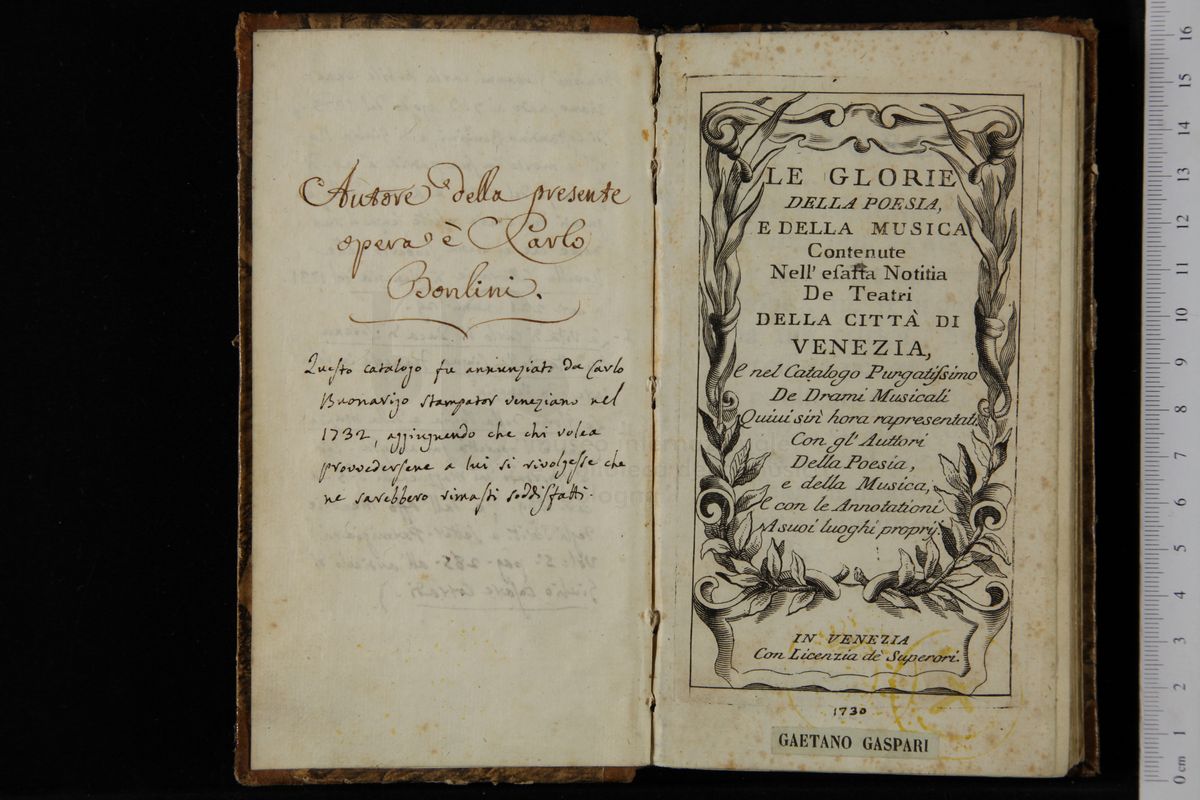 Autore della presente
opera è Carlo
Bonlini.
Questo catalogo fu annunziato da Carlo
Buonarigo stampator veneziano nel
1732, aggiugnendo che chi volea
provvedersene a lui si rivolgesse che
ne sarebbero rimasti soddisfatti.
LE GLORIE
DELLA POESIA,
E DELLA MUSICA
Contenute
Nell' esatta Notitia
De Teatri
DELLA CITTÀ DI
VENEZIA,
E nel Catalogo Purgatissimo
De Drami Musicali
Quiui sin' hora rapresentati
Con gl' Auttori
Della Poesia,
e della Musica,
E con le Annotationi
A suoi luoghi proprÿ.
IN VENEZIA
Con Licenzia de' Superori.
1730
GAETANO GASPARI
0 cm 1 2 3 4 5 6 7 8 9 10 11 12 13 14 15 16